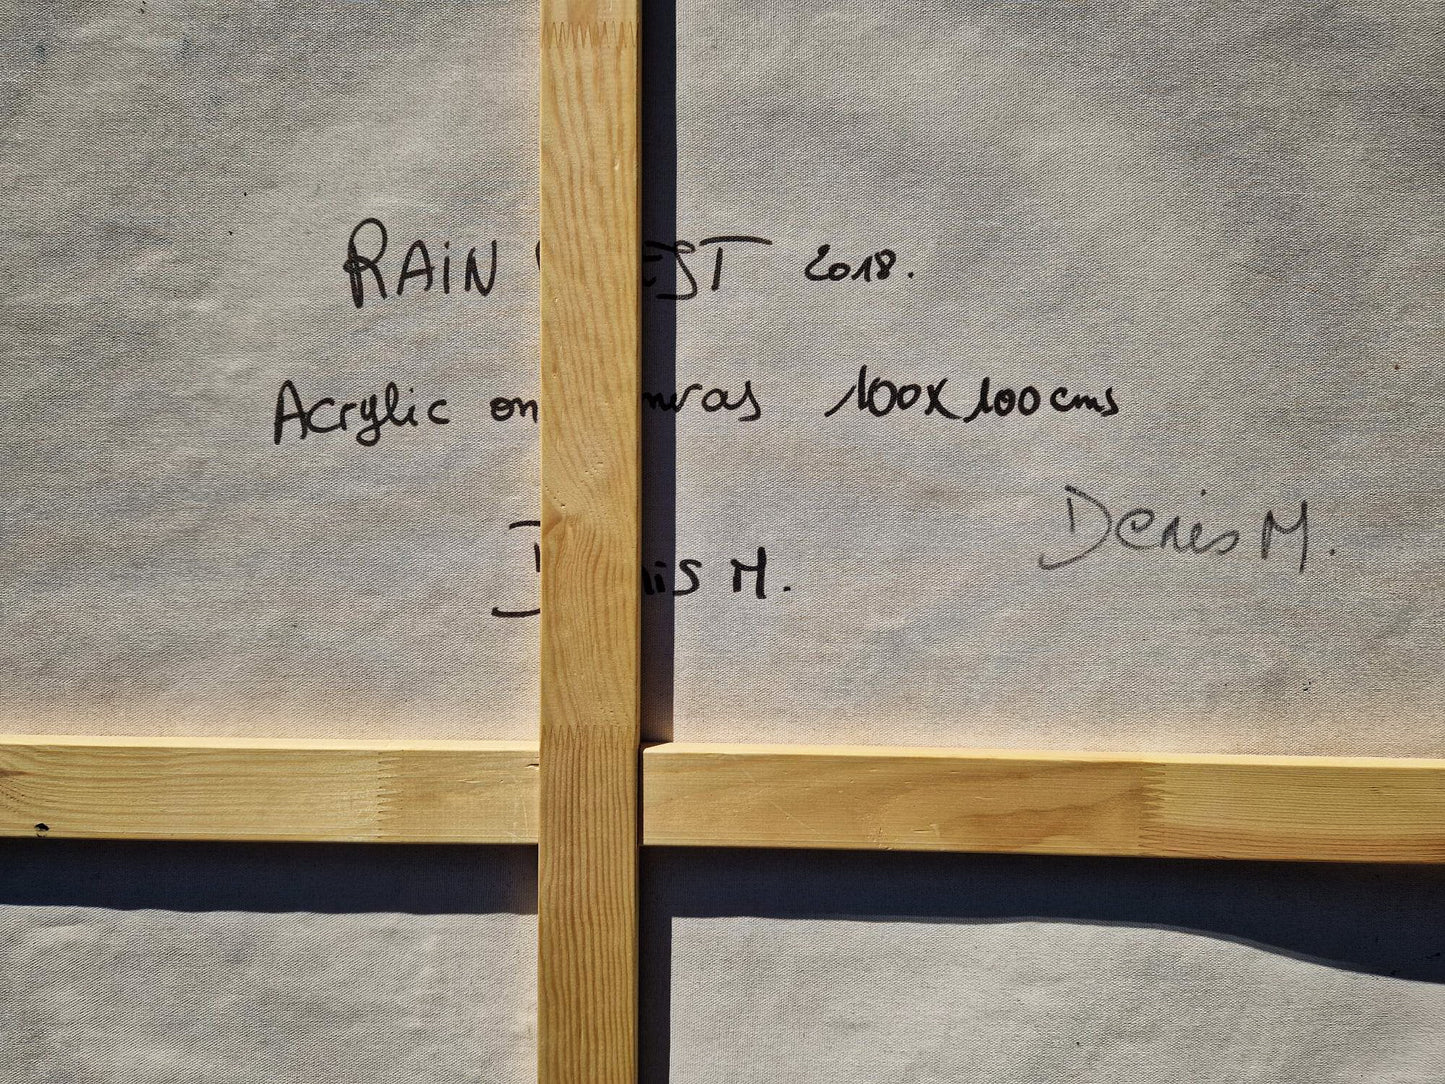 RAiN EST 2018.
Acrylic on nvas 100x100cms
Denis M.
D nis M.